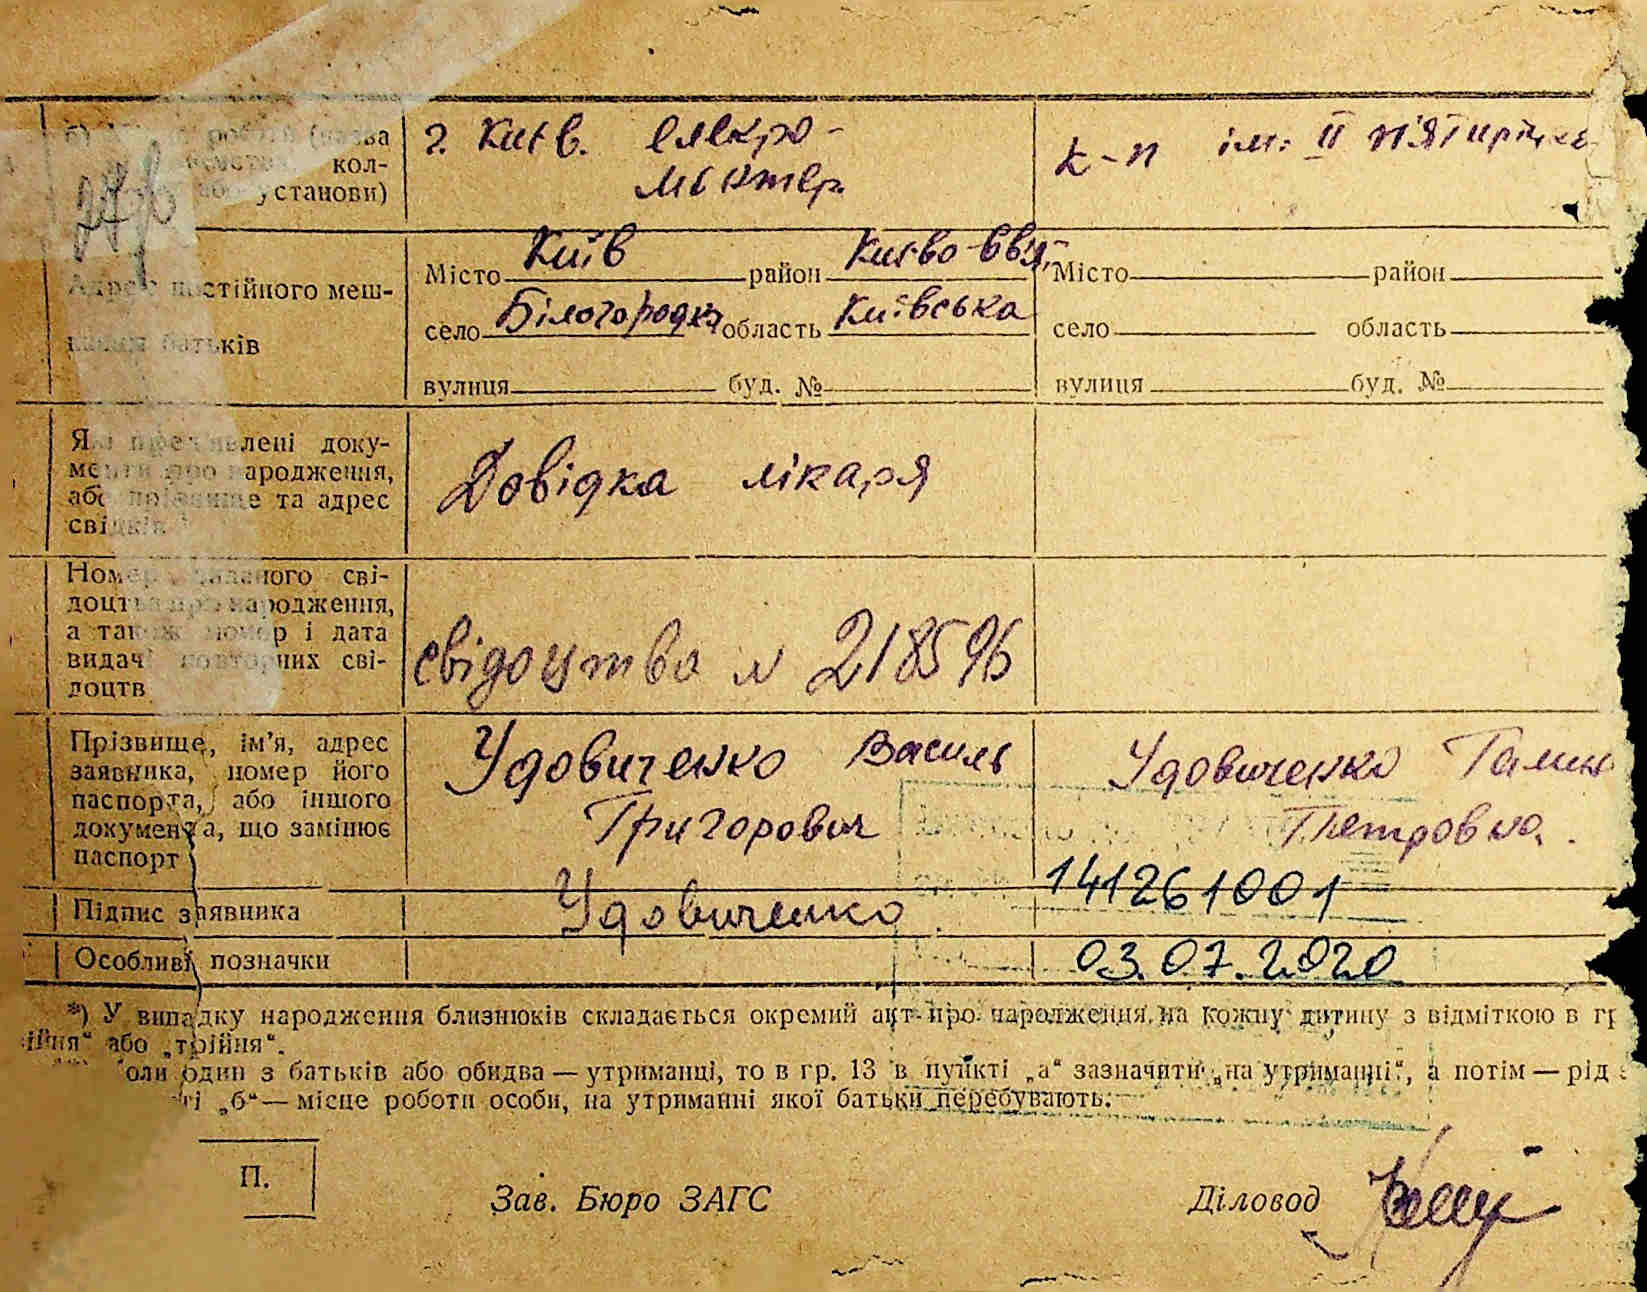 роботи (назва
кол-
установи)
г. Київ. електро-
монтер.
к-п ім. ІІ п'ятирічки
Адрес постійного меш-
кання батьків
Місто Київ район Києво-Свят.
село Білогородка область Київська
вулиця буд. №
Місто район
село область
вулиця буд. №
Які пред'явлені доку-
менти про народження,
або прізвище та адрес
свідків
Довідка лікаря
Номер виданого сві-
доцтва про народження,
а також номер і дата
видачі повторних сві-
доцтв
свідоцтво № 218596
Прізвище, ім'я, адрес
заявника, номер його
паспорта, або іншого
документа, що замінює
паспорт
Удовиченко Василь
Григорович
Удовиченко Галина
Петровна.
141261001
Підпис заявника
Удовиченко
Особливі позначки
03.07.2020
*) У випадку народження близнюків складається окремий акт про народження на кожну дитину з відміткою в гр
ійня" або „трійня".
оли один з батьків або обидва — утриманці, то в гр. 13 в пункті „а" зазначити „на утриманні", а потім — рід
ті „б" — місце роботи особи, на утриманні якої батьки перебувають.
П.
Зав. Бюро ЗАГС
Діловод